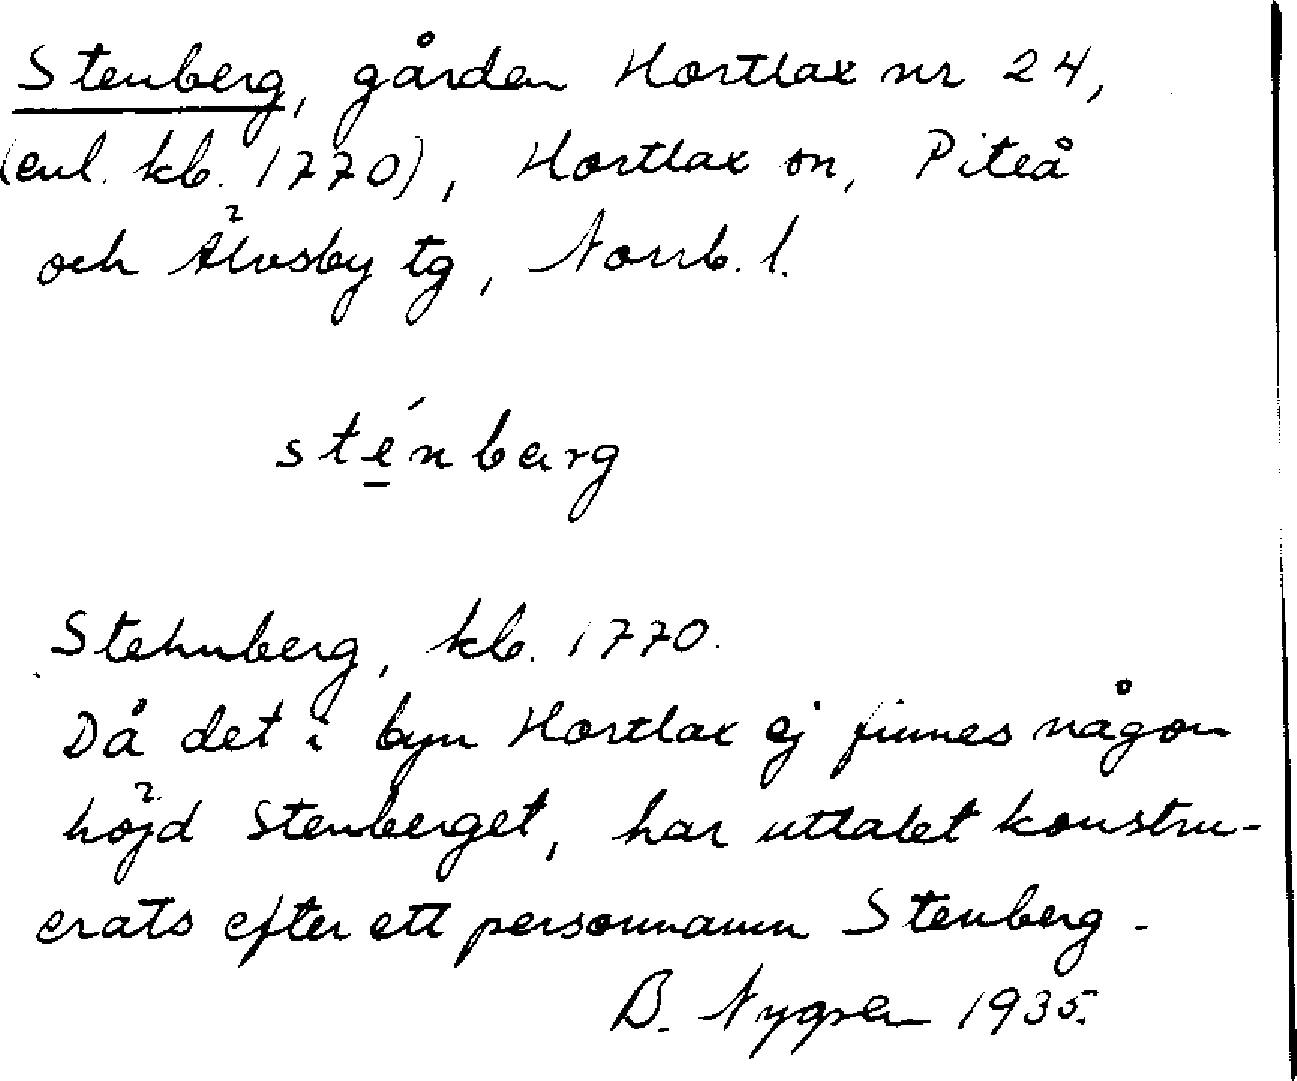 Stenberg, gården Hortlax nr 24,
(enl. kb. 1770), Hortlax sn, Piteå
och Älvsby tg, Norrb. l.
sté̱nbærg
Stehnberg, kb. 1770.
Då det i byn Hortlax ej finnes någon
höjd Stenberget, har uttalet konstru-
erats efter ett personnamn Stenberg.
B. Nygren 1935.